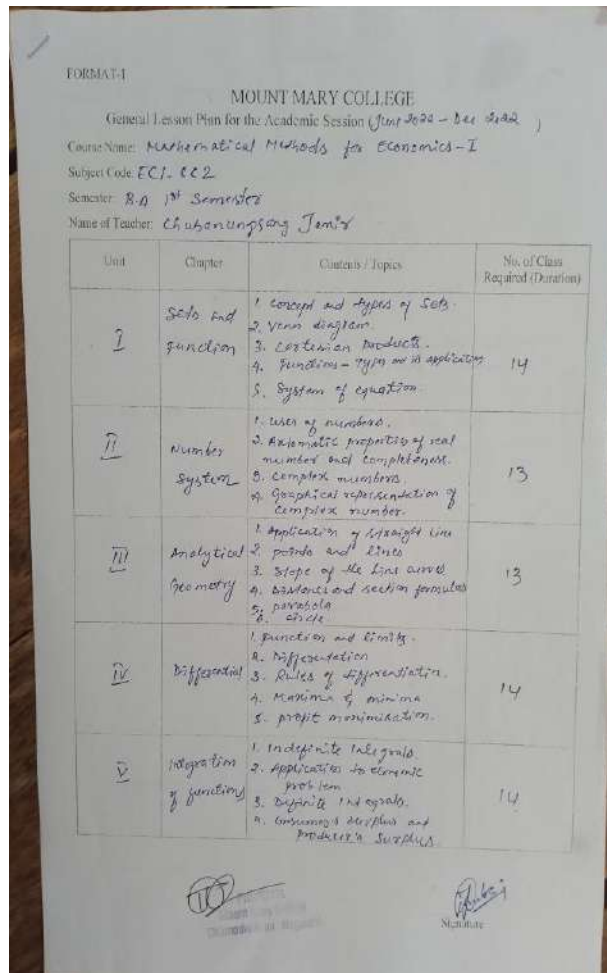 FORMAT-I
MOUNT MARY COLLEGE
General Lesson Plan for the Academic Session (June 2022 - Dec 2022 )
Course Name: Mathematical Methods for Economics-I
Subject Code: EC1. CC2
Semester: B.A 1st Semester
Name of Teacher: Chubanungsang Jamir
Unit Chapter Contents / Topics No. of Class Required (Duration)
I Sets and function 14
1. concept and types of Sets.
2. Venn diagram.
3. Cartesian products.
4. Functions - Types and its application
5. System of equation
II Number System 13
1. Uses of numbers.
2. Axiomatic properties of real
number and completeness.
3. Complex numbers.
4. Graphical representation of
complex number.
III Analytical Geometry 13
1. Application of straight line
2. points and lines
3. Slope of the line curves
4. Distance and section formulas
5. parabola
6. circle
IV Differential 14
1. Function and limits.
2. Differentation
3. Rules of differentiation.
4. Maxima & minima
5. profit maximisation.
V Integration of functions 14
1. Indefinite Integrals.
2. Application to economic
problem
3. Definite Integrals.
4. Consumer's surplus and
Producer's Surplus
Signature